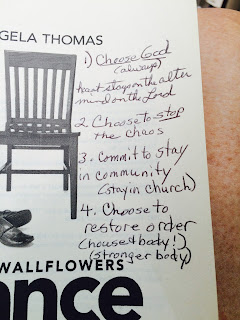 GELA THOMAS
1) Choose God
(always)
heart stays on the alter
mind on the Lord
2. Choose to stop
the chaos
3. Commit to stay
in community
(stay in church)
4. Choose to
restore order
(house & body!)
(stronger body)
WALLFLOWERS
ance